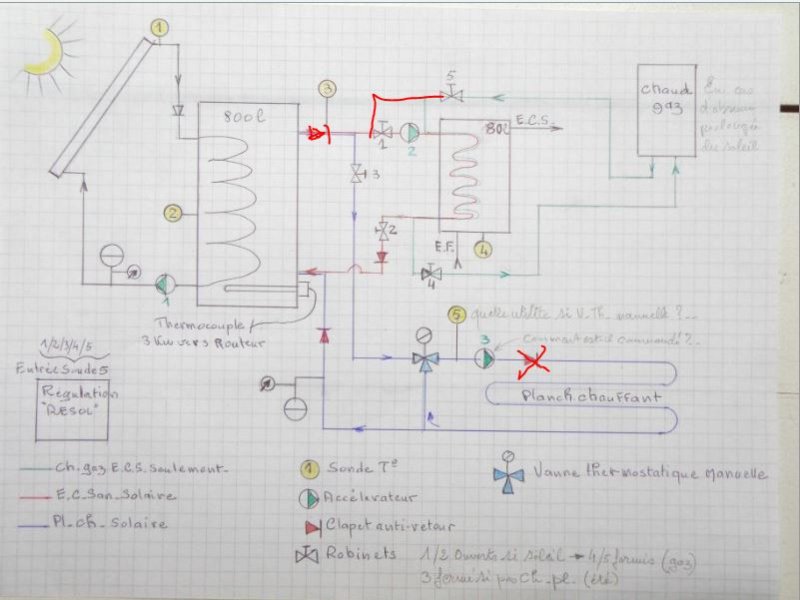 1
3
5
800l
1
2
80l
E.C.S.
chaud
gaz
En cas
d'absence
prolongée
du soleil
3
2
2
E.F.
4
4
1
Thermocouple
3 Kw vers Routeur
5 quelle utilité si V.Th. manuelle ?..
3 comment est il commandé ?..
1/2/3/4/5
Entrée Sonde 5
Régulation
"RESOL"
Planch. chauffant
Ch. gaz E.C.S. Seulement.
E.C. San. Solaire
Pl. ch. Solaire
1 Sonde T°
Accélérateur
Clapet anti-retour
Robinets
Vanne thermostatique Manuelle
1/2 Ouverts si soleil → 4/5 fermés (gaz)
3 fermé si pas Ch. pl. (été)